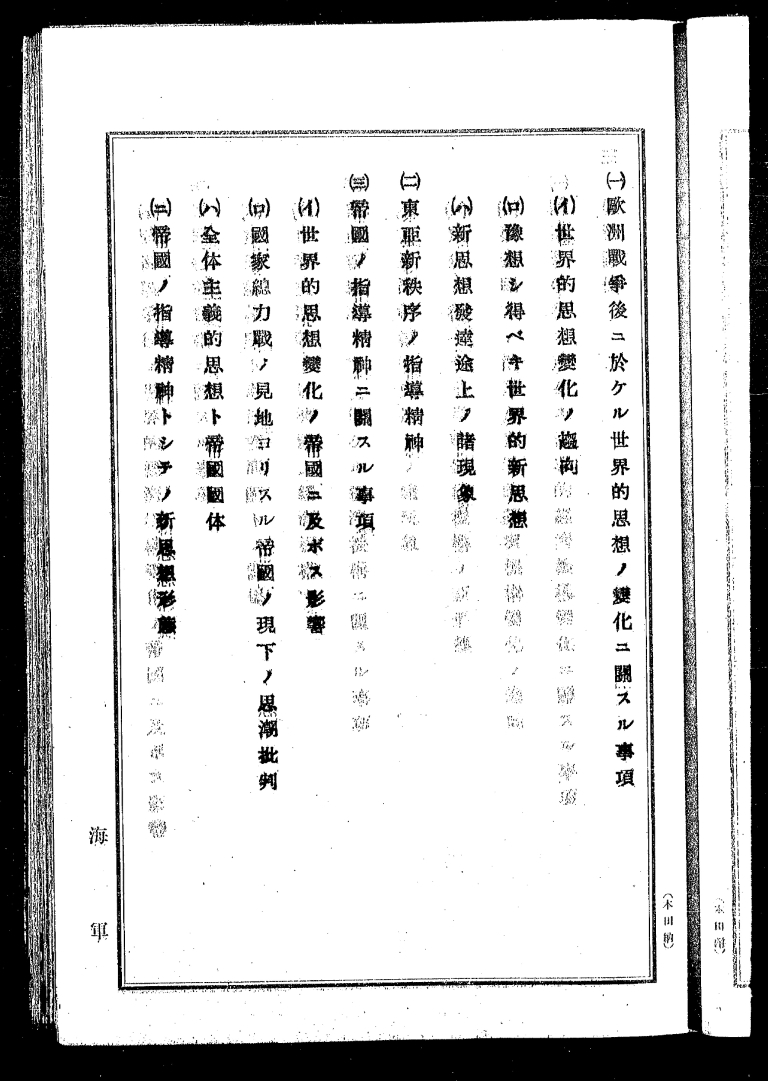 ㈠歐洲戰爭後ニ於ケル世界的思想ノ變化ニ關スル事項
(イ)世界的思想變化ノ趨向
(ロ)豫想シ得ベキ世界的新思想
(ハ)新思想發達途上ノ諸現象
㈡東亞新秩序ノ指導精神
㈢帝國ノ指導精神ニ關スル事項
(イ)世界的思想變化ノ帝國ニ及ボス影響
(ロ)國家總力戰ノ見地ヨリスル帝國ノ現下ノ思潮批判
(ハ)全体主義的思想ト帝國國体
(ニ)帝國ノ指導精神トシテノ新思想形態
海軍
(木田納)